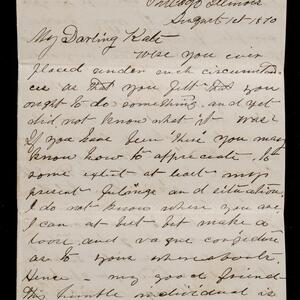 Chicago Illinois
August 1st 1880
My Darling Kate
Were you ever
placed under such circumstan
ces as that you felt that you
ought to do something, and yet
did not know what it was?
If you have been "there" you may
know how to appreciate, to
some extent at least my
present feelings and situation.
I do not know where you are
I can at but but make a
loose and vague conjecture
as to your whereabouts.
Hence — my good friend—
this humble individual is